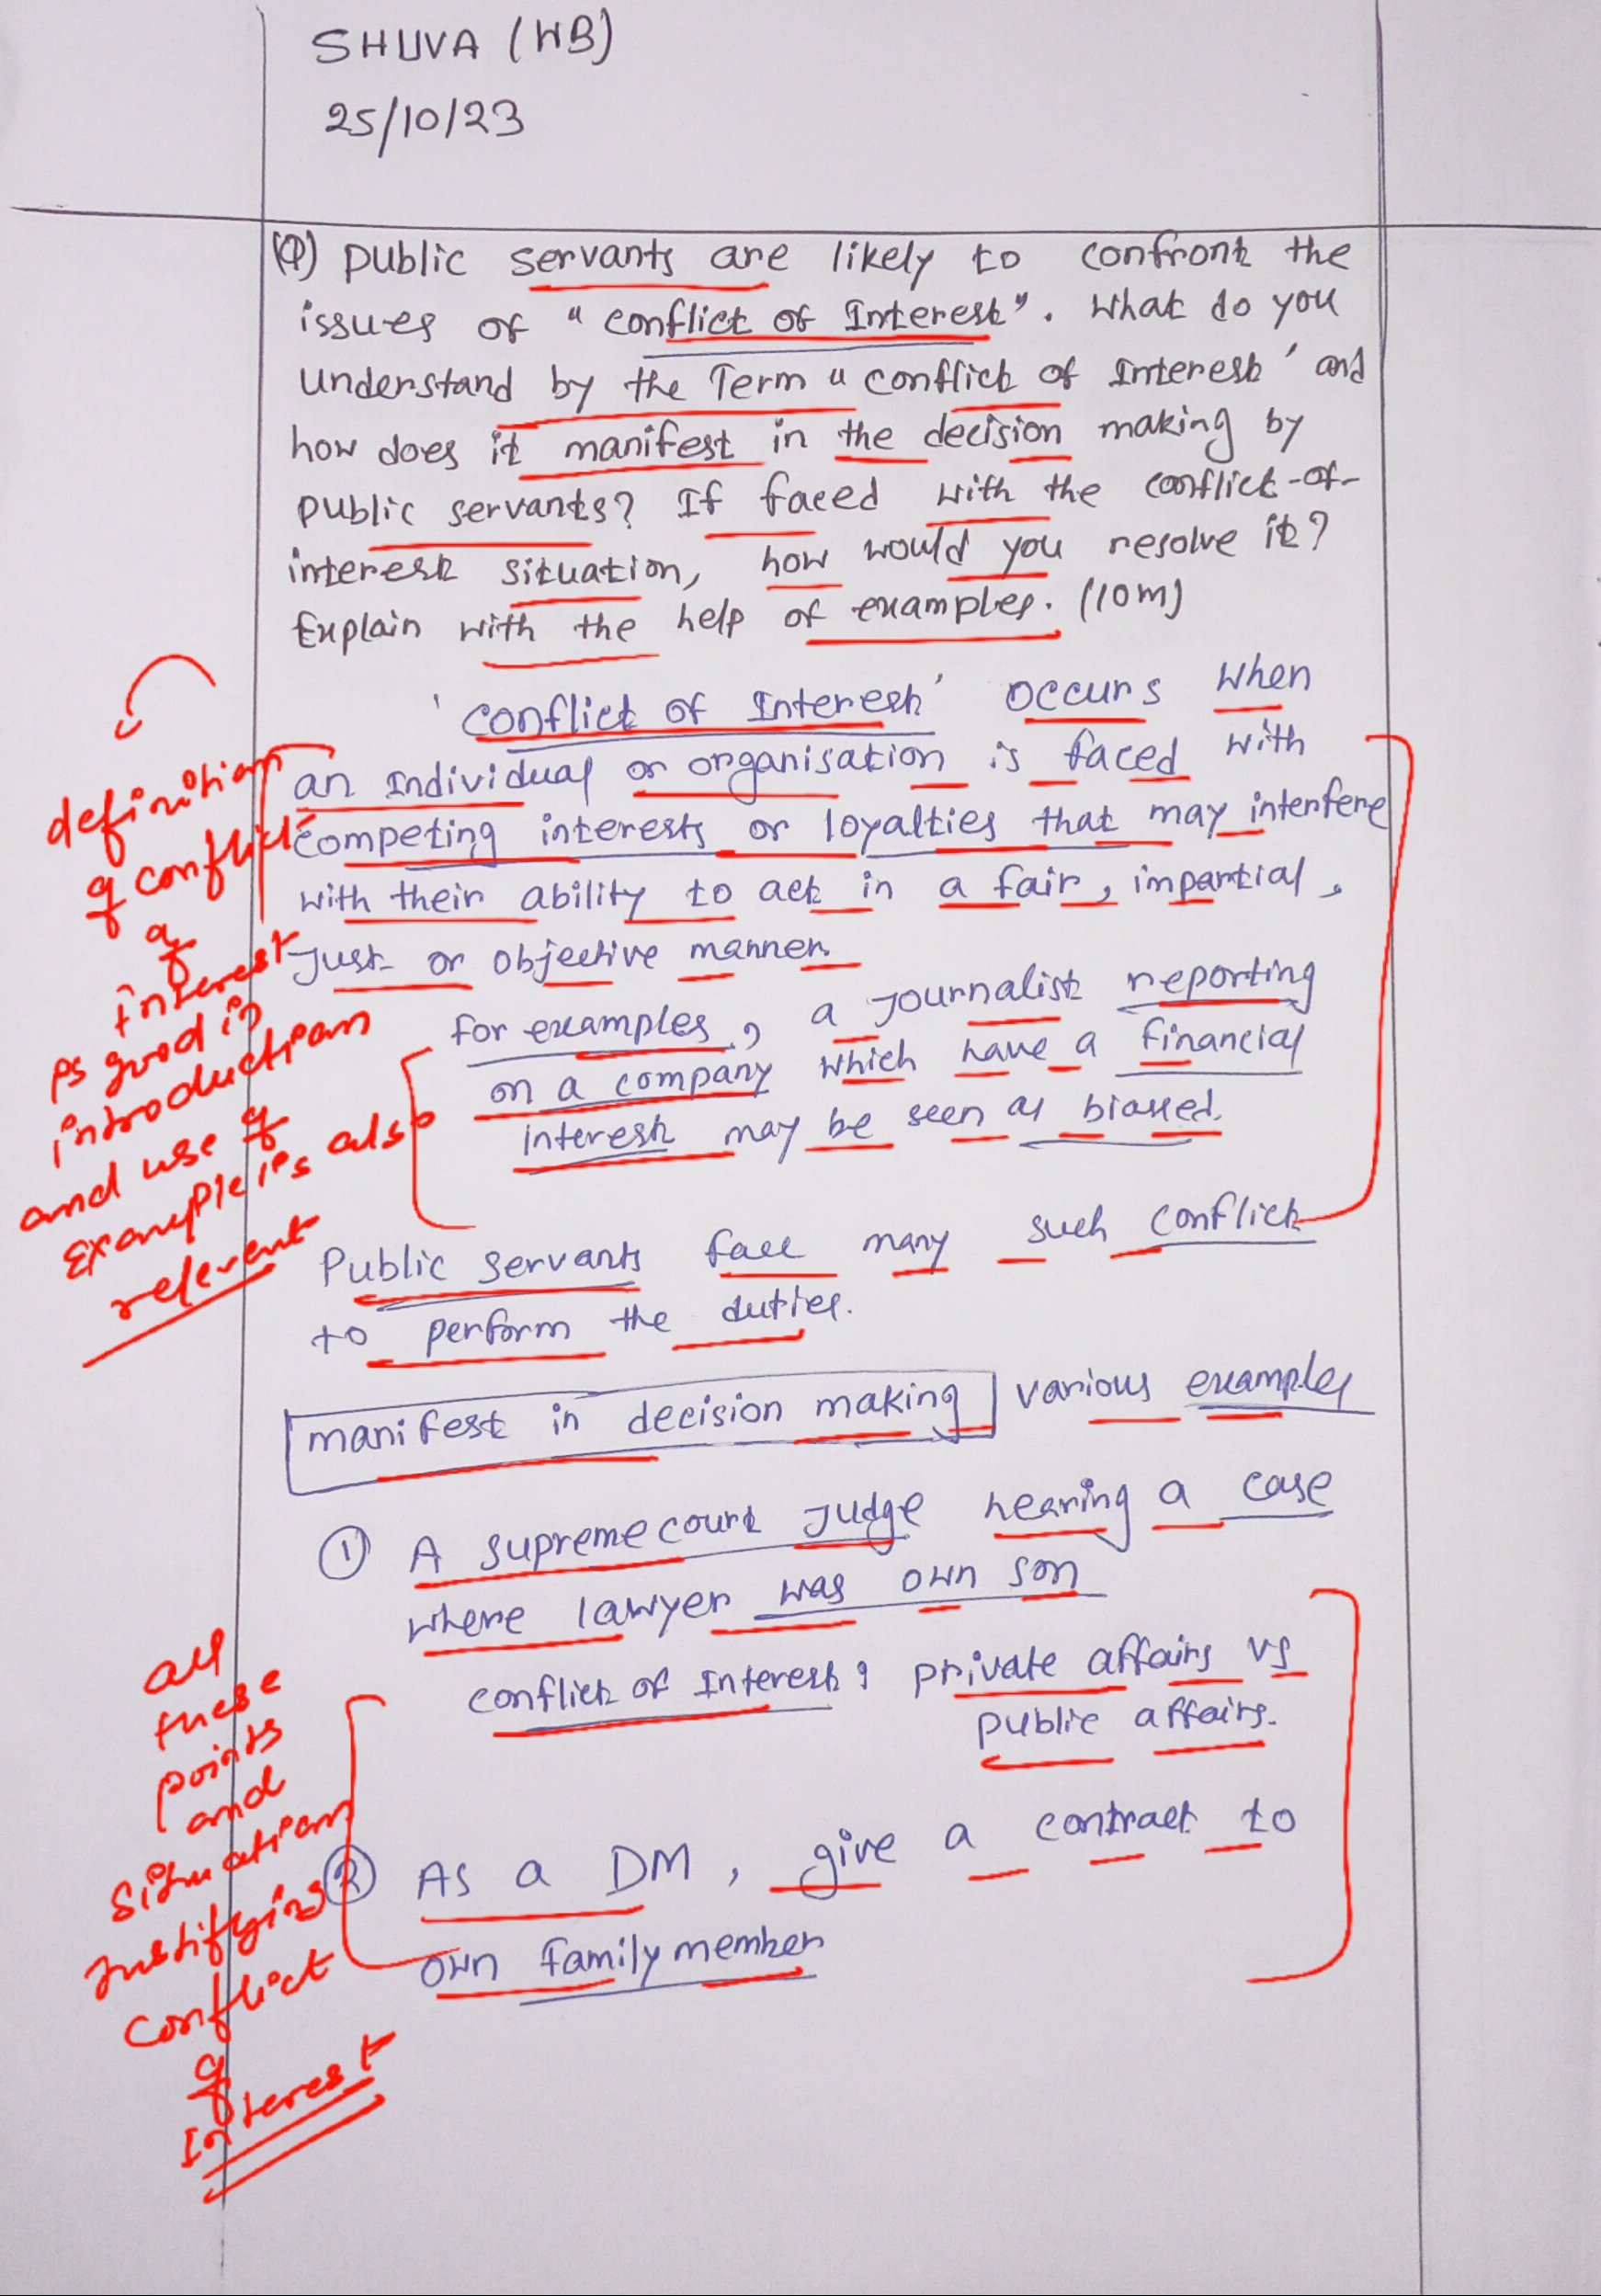 SHUVA (WB)
25/10/23
(Q) Public servants are likely to confront the
issues of "conflict of Interest". What do you
understand by the Term "conflict of Interest' and
how does it manifest in the decision making by
public servants? If faced with the conflict-of-
interest situation, how would you resolve it?
Explain with the help of examples. (10m)
'conflict of Interest' occurs when
an individual or organisation is faced with
competing interests or loyalties that may interfere
with their ability to act in a fair, impartial,
Just or objective manner.
for examples, a Journalist reporting
on a company which have a financial
interest may be seen as biased.
Public servants face many such conflict
to perform the duties.
manifest in decision making various examples
① A supreme court Judge hearing a case
where lawyer was own son
conflict of Interest: private affairs vs
public affairs.
② As a DM, give a contract to
own family member
definition
of conflict
of
interest
is good in
introduction
and use of
example is also
relevent
all
these
points
and
situation
justifying
conflict
of
Interest